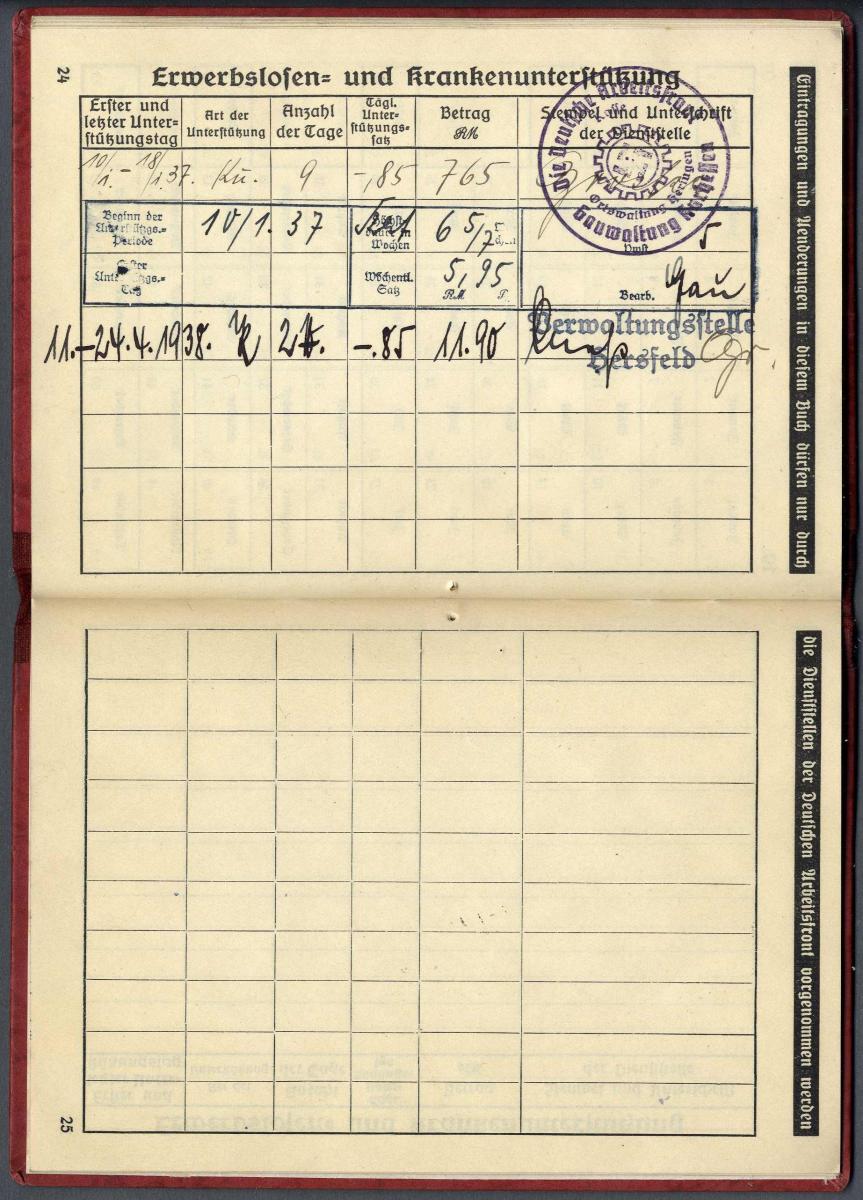 24
Erwerbslosen= und Krankenunterstützung
Erster und letzter Unter=stützungstag
Art der Unterstützung
Anzahl der Tage
Tägl. Unter=stützungs=satz
Betrag RM
Stempel und Unterschrift der Dienststelle
10/1. – 18/1. 37. Ku. 9 -,85 765
Die Deutsche Arbeitsfront
Ortswaltung Heringen
Gauwaltung Kurhessen
Beginn der Unterstützgs.=Periode 10/1. 37 Höchst dauer in Wochen 6 5/7 5
Erster Unterstützgs.=Tag Wöchentl. Satz 5,95 RM P. Bearb. Gau
11.–24.4.1938. K 14. -.85 11.90 Verwaltungsstelle
Hersfeld
Eintragungen und Aenderungen in diesem Buch dürfen nur durch
die Dienststellen der Deutschen Arbeitsfront vorgenommen werden
25